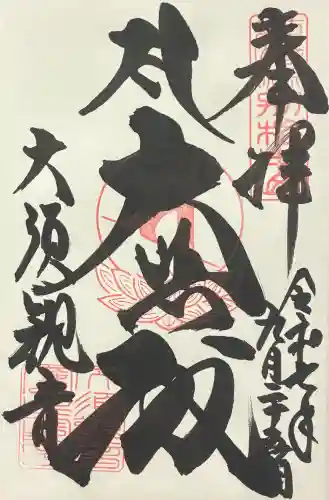 奉拝
令和七年
九月二十五日
大悲殿
大須観音